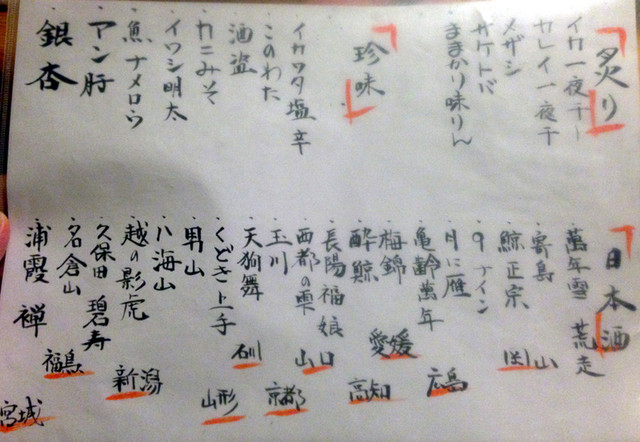 炙り
イカ一夜干し
カレイ一夜干
メザシ
サケトバ
ままかり味りん
珍味
イカワタ塩辛
このわた
酒盗
カニみそ
イワシ明太
魚ナメロウ
アン肝
銀杏
日本酒
萬年雪 荒走
寄島
鯨正宗
9ナイン
岡山
月に雁
亀齢萬年
広島
梅錦
愛媛
酔鯨
高知
長陽福娘
西都の雫
山口
玉川
京都
天狗舞
石川
くどき上手
男山
山形
八海山
越の影虎
久保田 碧寿
新潟
名倉山
福島
浦霞 禅
宮城